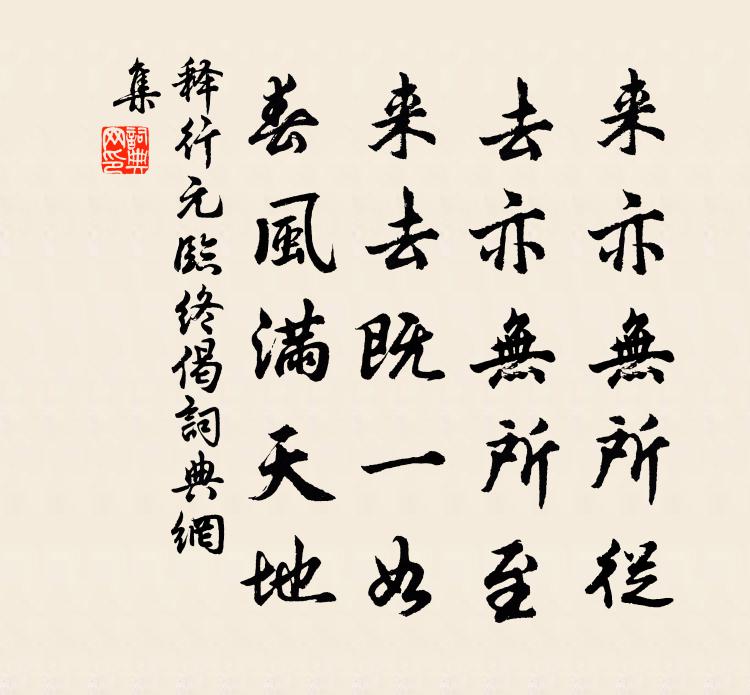 来亦無所從
去亦無所至
来去既一如
春風滿天地
释行元臨终偈詞典網
集
詞典
网印